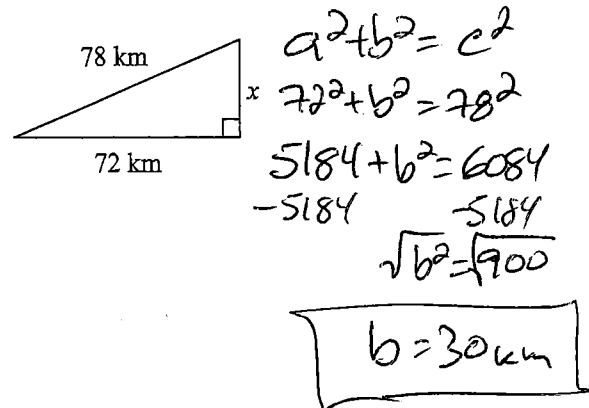 78 km
x
72 km
a²+b²= c²
72²+b²=78²
5184+b²=6084
-5184 -5184
√b²=√900
b=30km